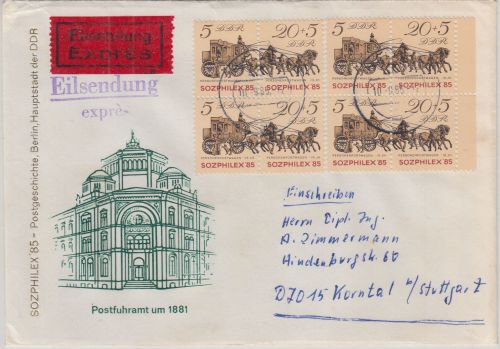 Eilsendung
Exprès
Eilsendung
exprès
SOZPHILEX '85 - Postgeschichte, Berlin, Hauptstadt der DDR
5 DDR 20+5 5 DDR 20+5
SOZPHILEX '85 SOZPHILEX '85
5 DDR 20+5 5 DDR 20+5
SOZPHILEX '85 SOZPHILEX '85
Postfuhramt um 1881
Einschreiben
Herrn Dipl. Ing.
A. Zimmermann
Hindenburgstr. 60
D7015 Korntal b/Stuttgart